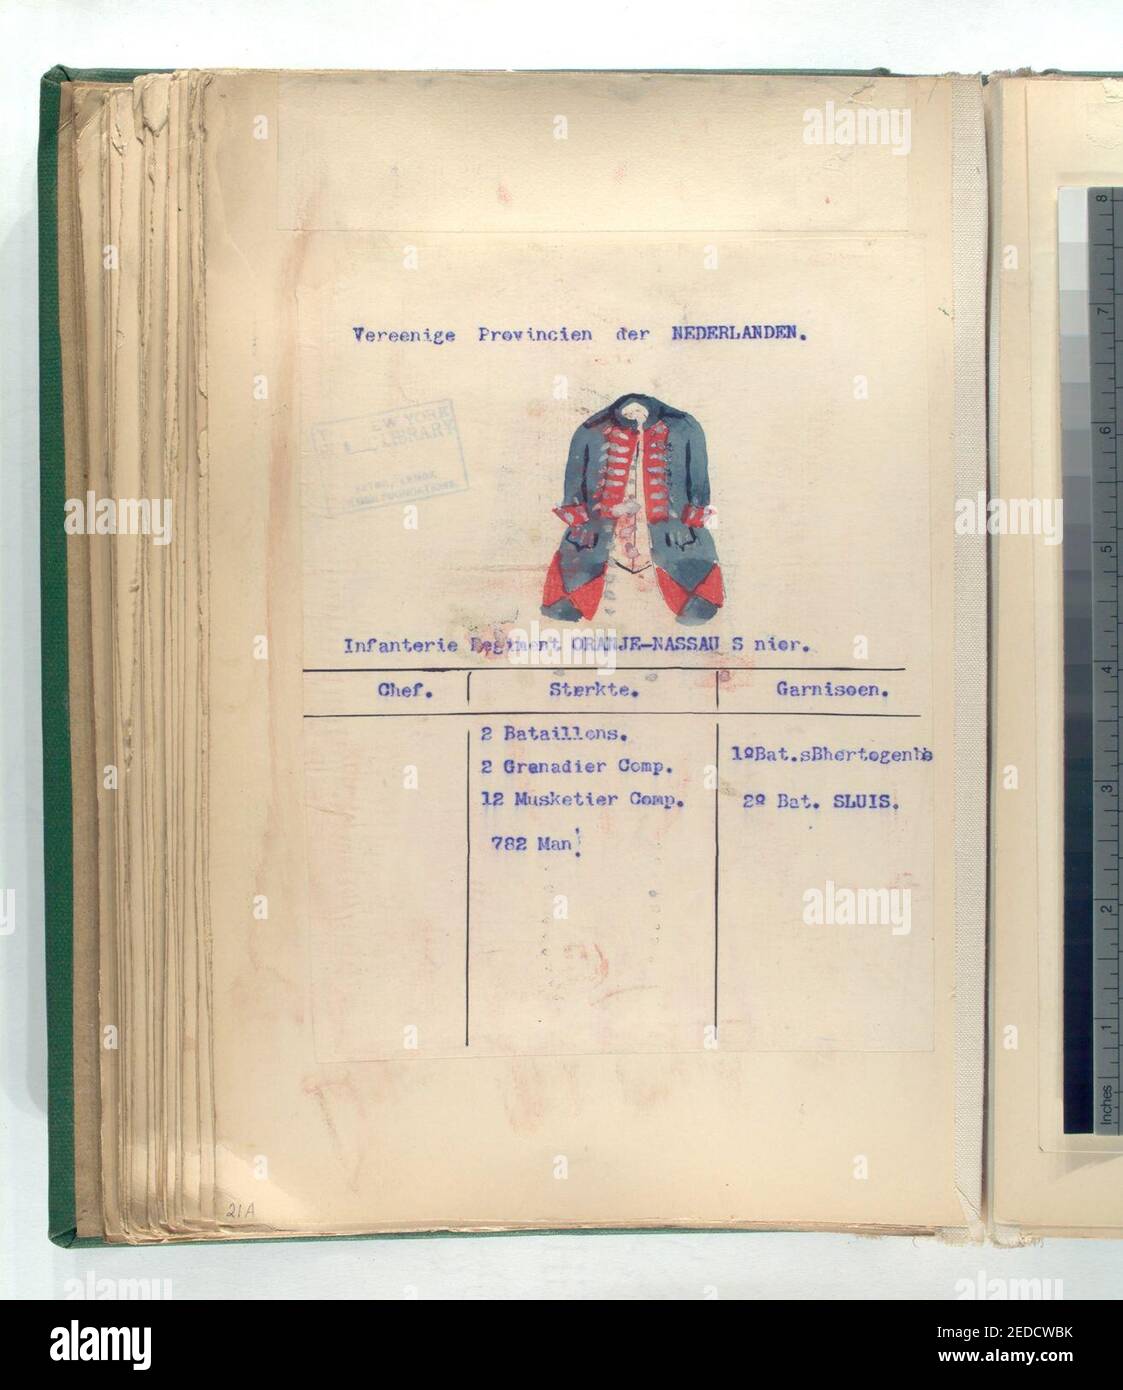 Vereenige Provincien der NEDERLANDEN.
YORK
LIBRARY
Infanterie Regiment ORANJE-NASSAU S nier.
Chef. Sterkte. Garnisoen.
2 Bataillons.
2 Grenadier Comp.
12 Musketier Comp.
782 Man!
1º Bat.sBhertogenb
2º Bat. SLUIS.
21A
8
7
6
5
4
3
2
1
Inches
alamy
alamy
Image ID: 2EDCWBK
www.alamy.com